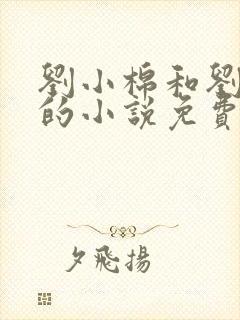 劉小棉和劉
的小說免費
夕飛揚